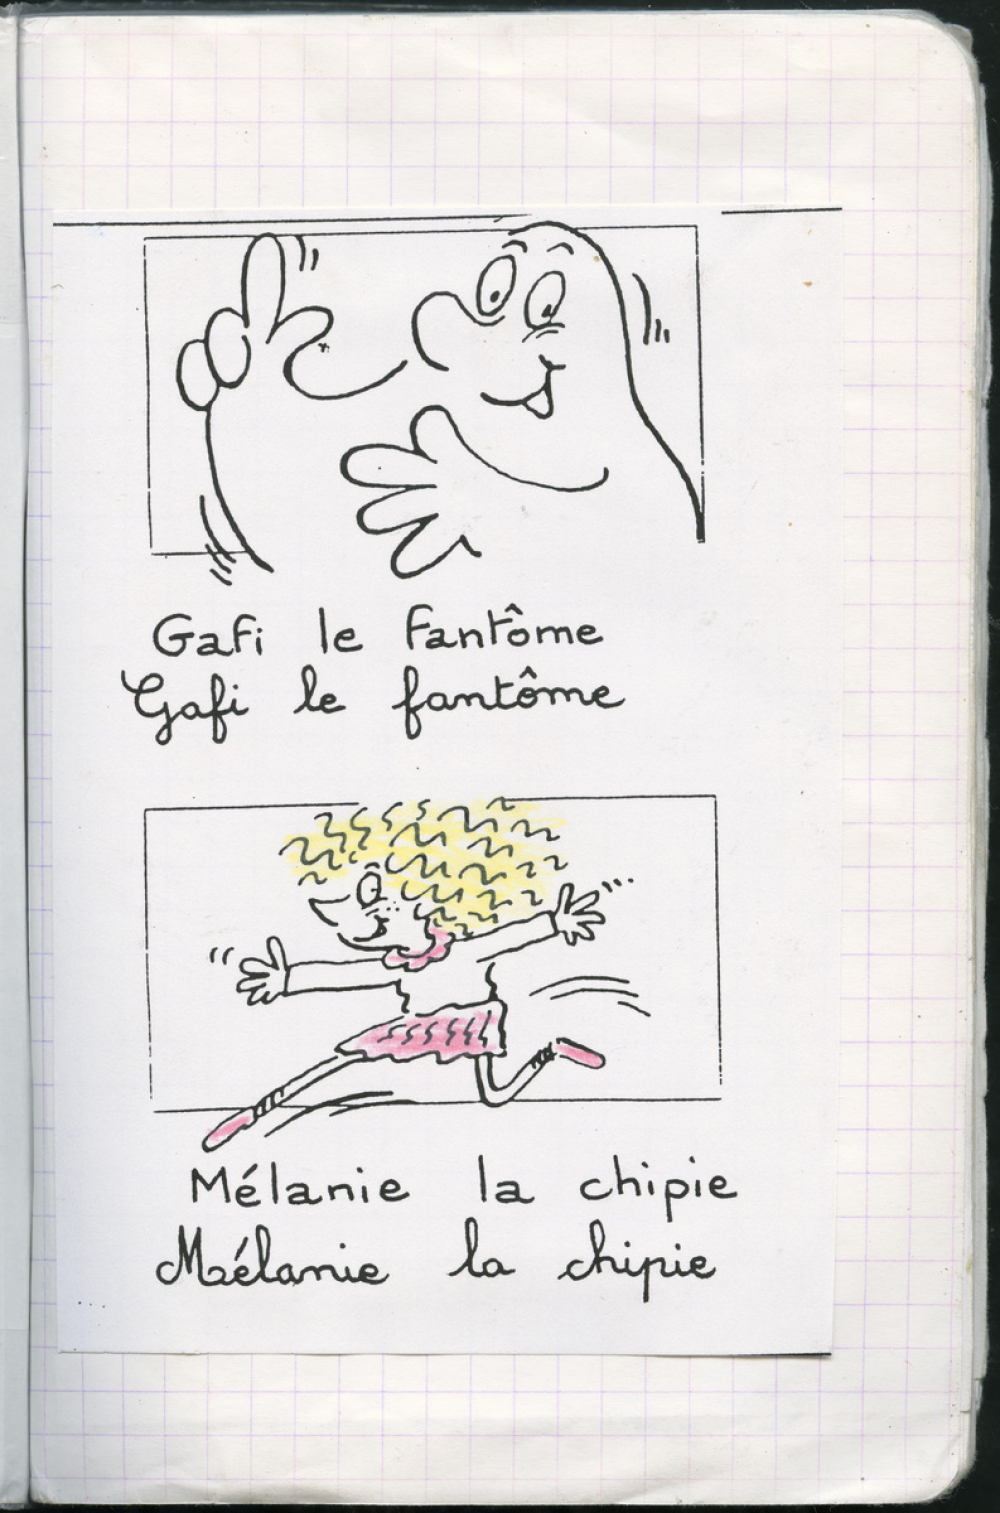 Gafi le fantôme
Gafi le fantôme
Mélanie la chipie
Mélanie la chipie